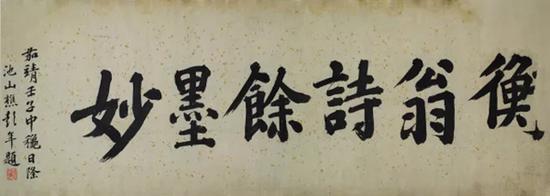 衡翁詩餘墨妙
茄靖壬子中穐日隆
池山樵彭年題